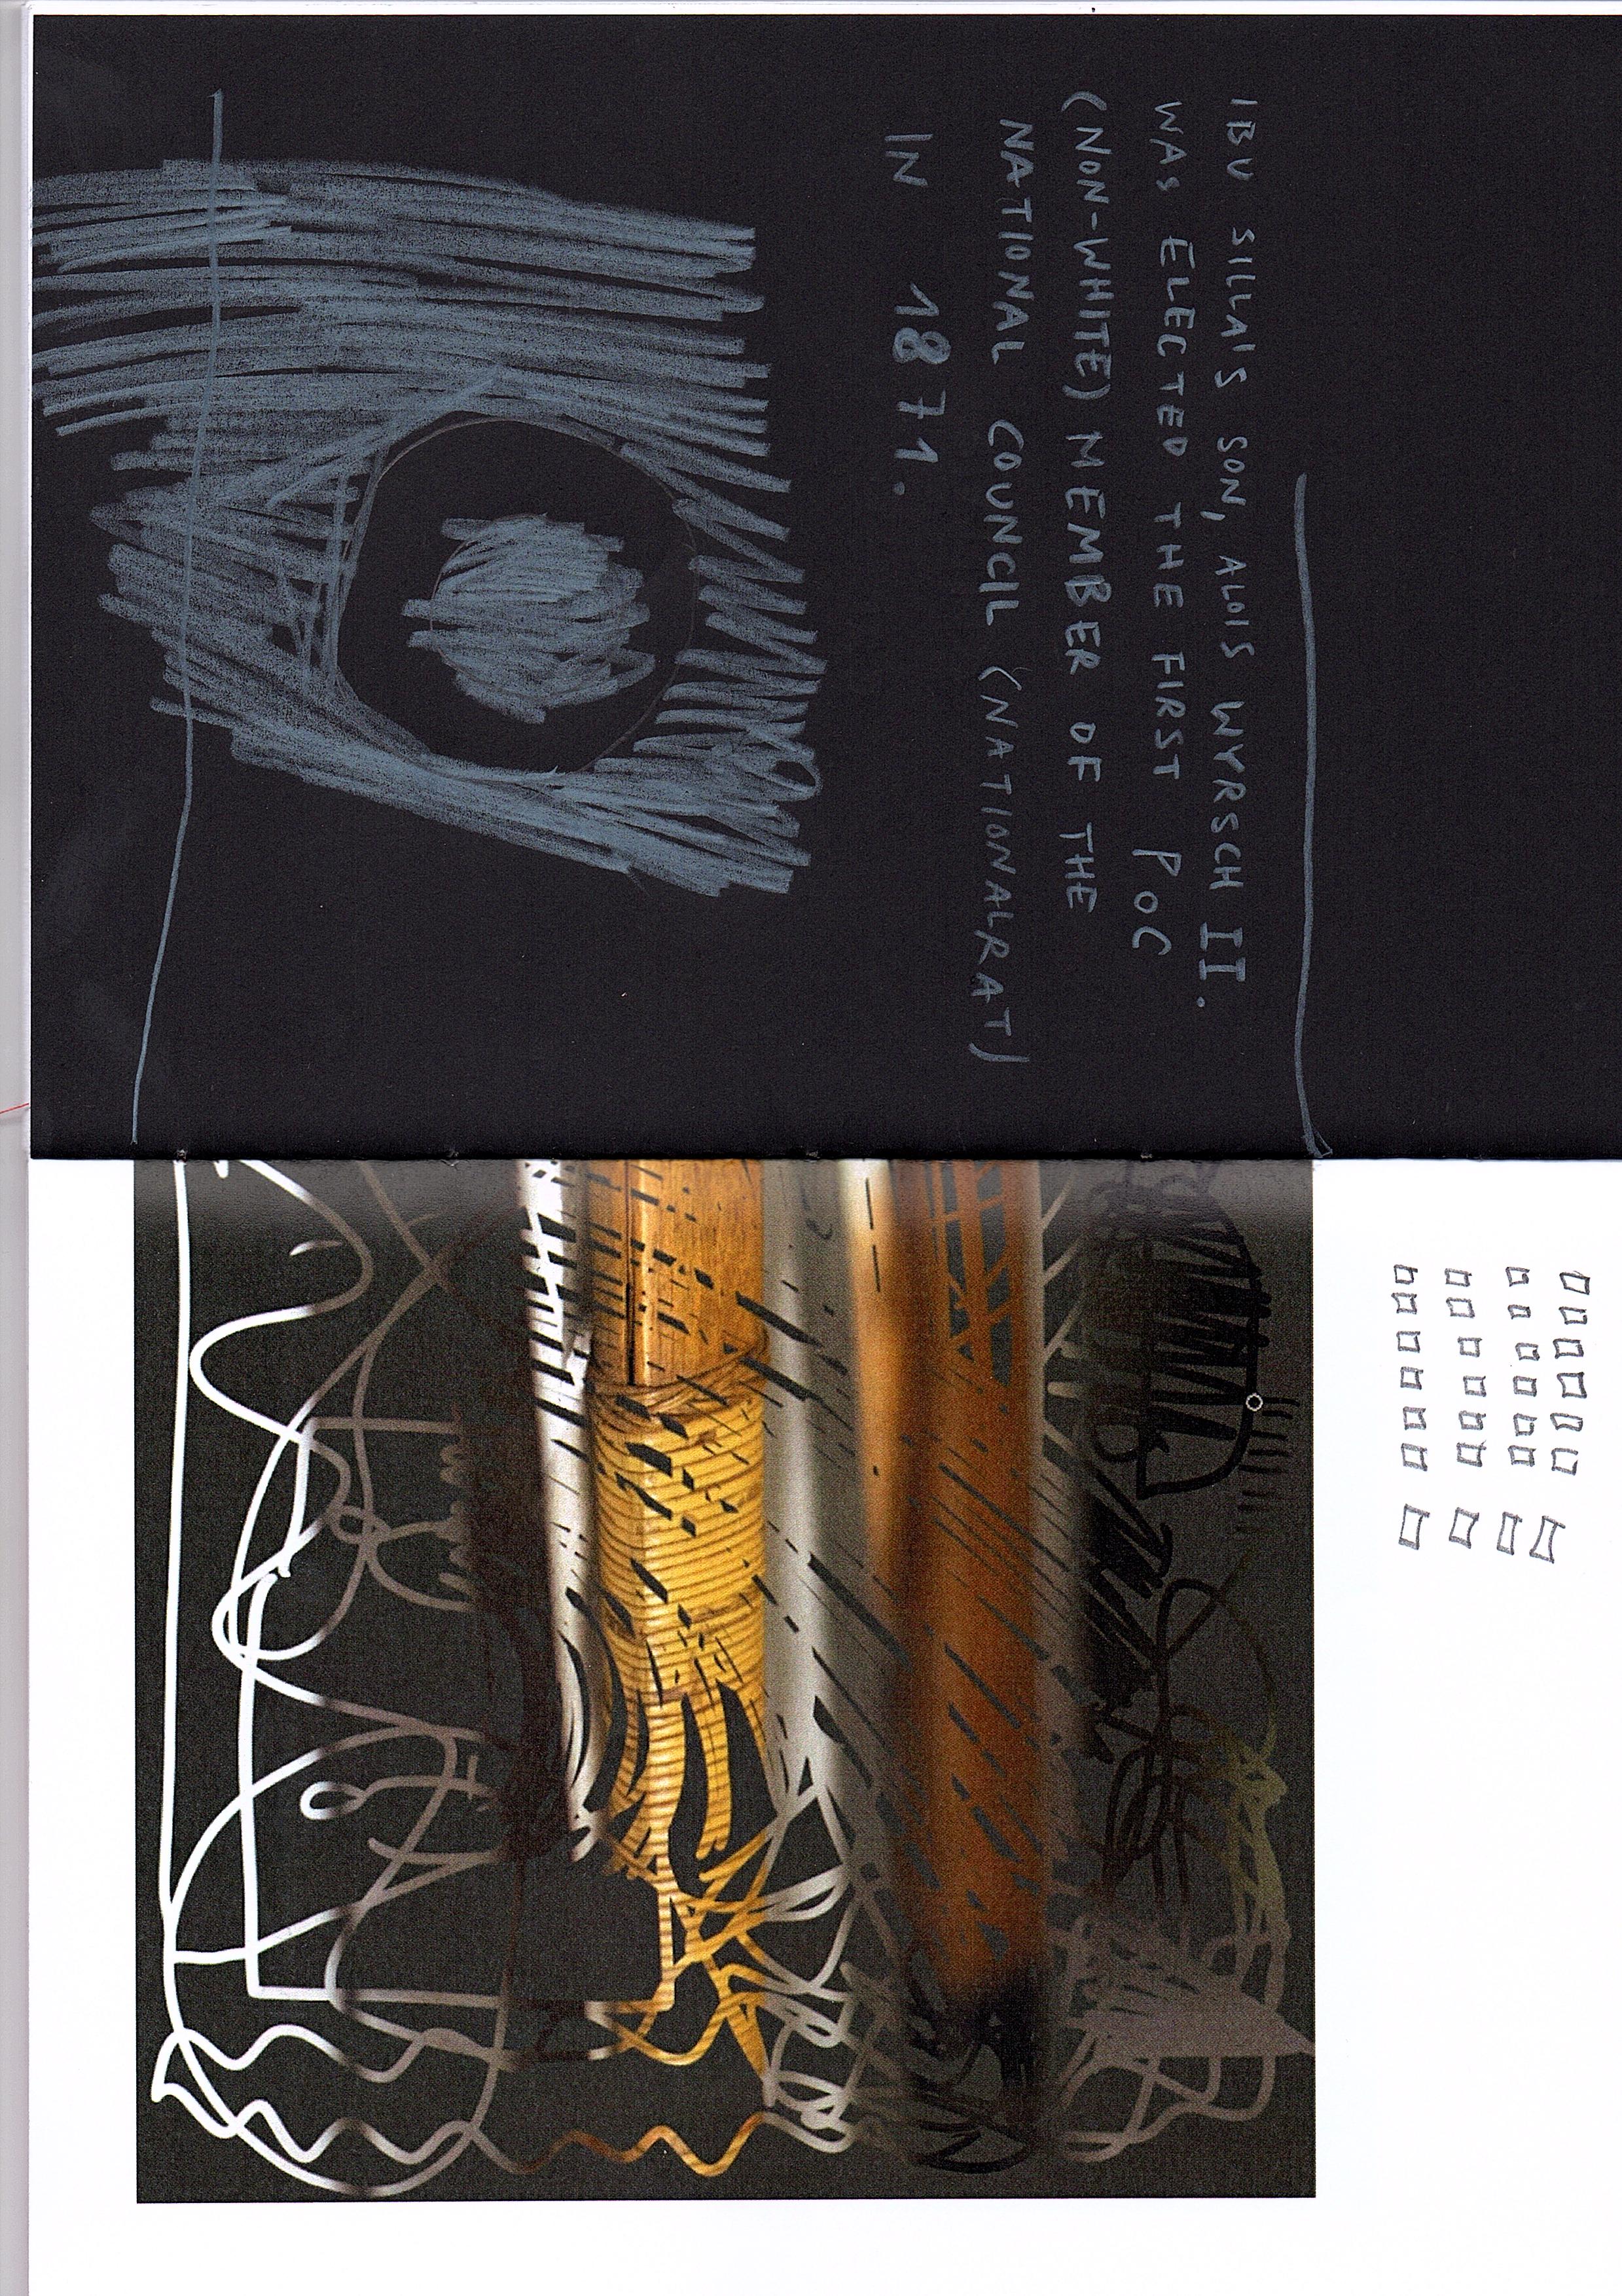 IBU SILLA'S SON, ALOIS WYRSCH II.
WAS ELECTED THE FIRST PoC
(NON-WHITE) MEMBER OF THE
NATIONAL COUNCIL (NATIONALRAT)
IN 1871.